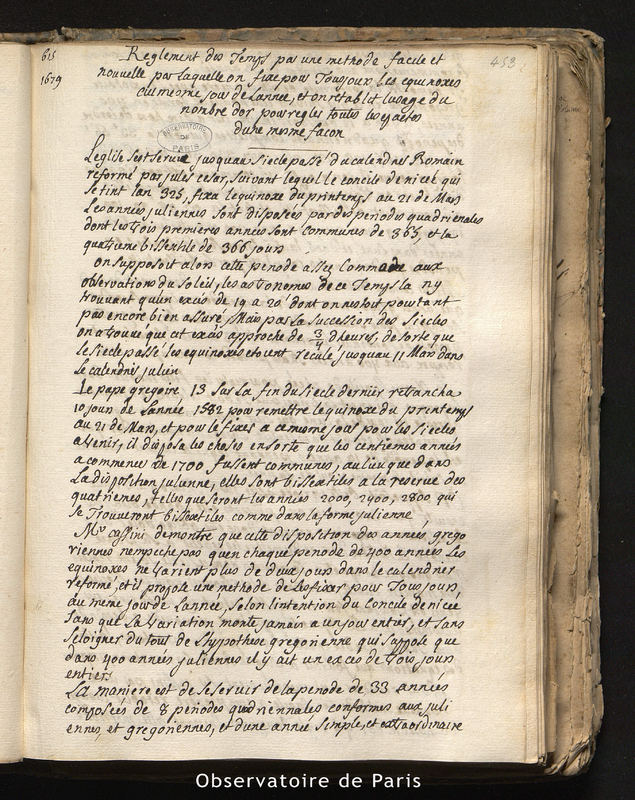 615
1679
453
Reglement des Temps par une methode facile et
nouvelle par laquelle on fixe pour Tousjours les equinoxes
au mesme jour de Lannée, et on retablit lusage du
nombre dor pour regler toutes les epactes
du la mesme facon
OBSERVATOIRE
DE
PARIS
Leglise sest servie jusquau siecle passé du calendrier Romain
reformé par jules cesar, suivant lequel le concile de nicee qui
se tint lan 325, fixa lequinoxe du printemps au 21 de Mars
Les années juliennes sont disposées par des periodes quadrienales
dont les trois premieres années sont communes de 365, et la
quatrieme bissextile de 366 jours
on supposoit alors cette periode assez commode aux
observations du soleil, les astronomes de ce Temps la ny
trouvant quun excés de 19 a 20' dont on nestoit pourtant
pas encore bien assuré, Mais par la succession des siecles
on a trouvé que cet excés approche de 3/4 dheures, de sorte que
le siecle passé les equinoxes etoient reculé jusquau 11 Mars dans
le calendrier julien
Le pape gregoire 13 sur la fin du siecle dernier retrancha
10 jours de Lannée 1582 pour remettre lequinoxe du printemps
au 21 de Mars, et pour le fixer a ce mesme jour pour les siecles
a venir, il disposa les choses en sorte que les centiemes années
a commencer de 1700 fussent communes, au lieu que dans
La disposition julienne, elles sont bissextiles a la reserve des
quatriemes, telles que seront les années 2000, 2400, 2800 qui
se Trouveront bissextiles comme dans la forme julienne
Mr cassini demontre que cette disposition des années grego
riennes nempeche pas quen chaque periode de 400 années Les
equinoxes ne varient plus de deux jours dans le calendrier
reformé, et il propose une methode de les fixer pour Tousjours,
au meme jour de Lannée, selon lintention du Concile de nicée
sans que La variation monte jamais a un jour entier, et sans
seloigner du tout de Lhypothese gregorienne qui suppose que
dans 400 années juliennes il y ait un excés de trois jours
entiers
La maniere est de se servir de la periode de 33 années
composées de 8 periodes quadriennales conformes aux juli
ennes, et gregoriennes, et dune année simple, et extraordinaire
Observatoire de Paris